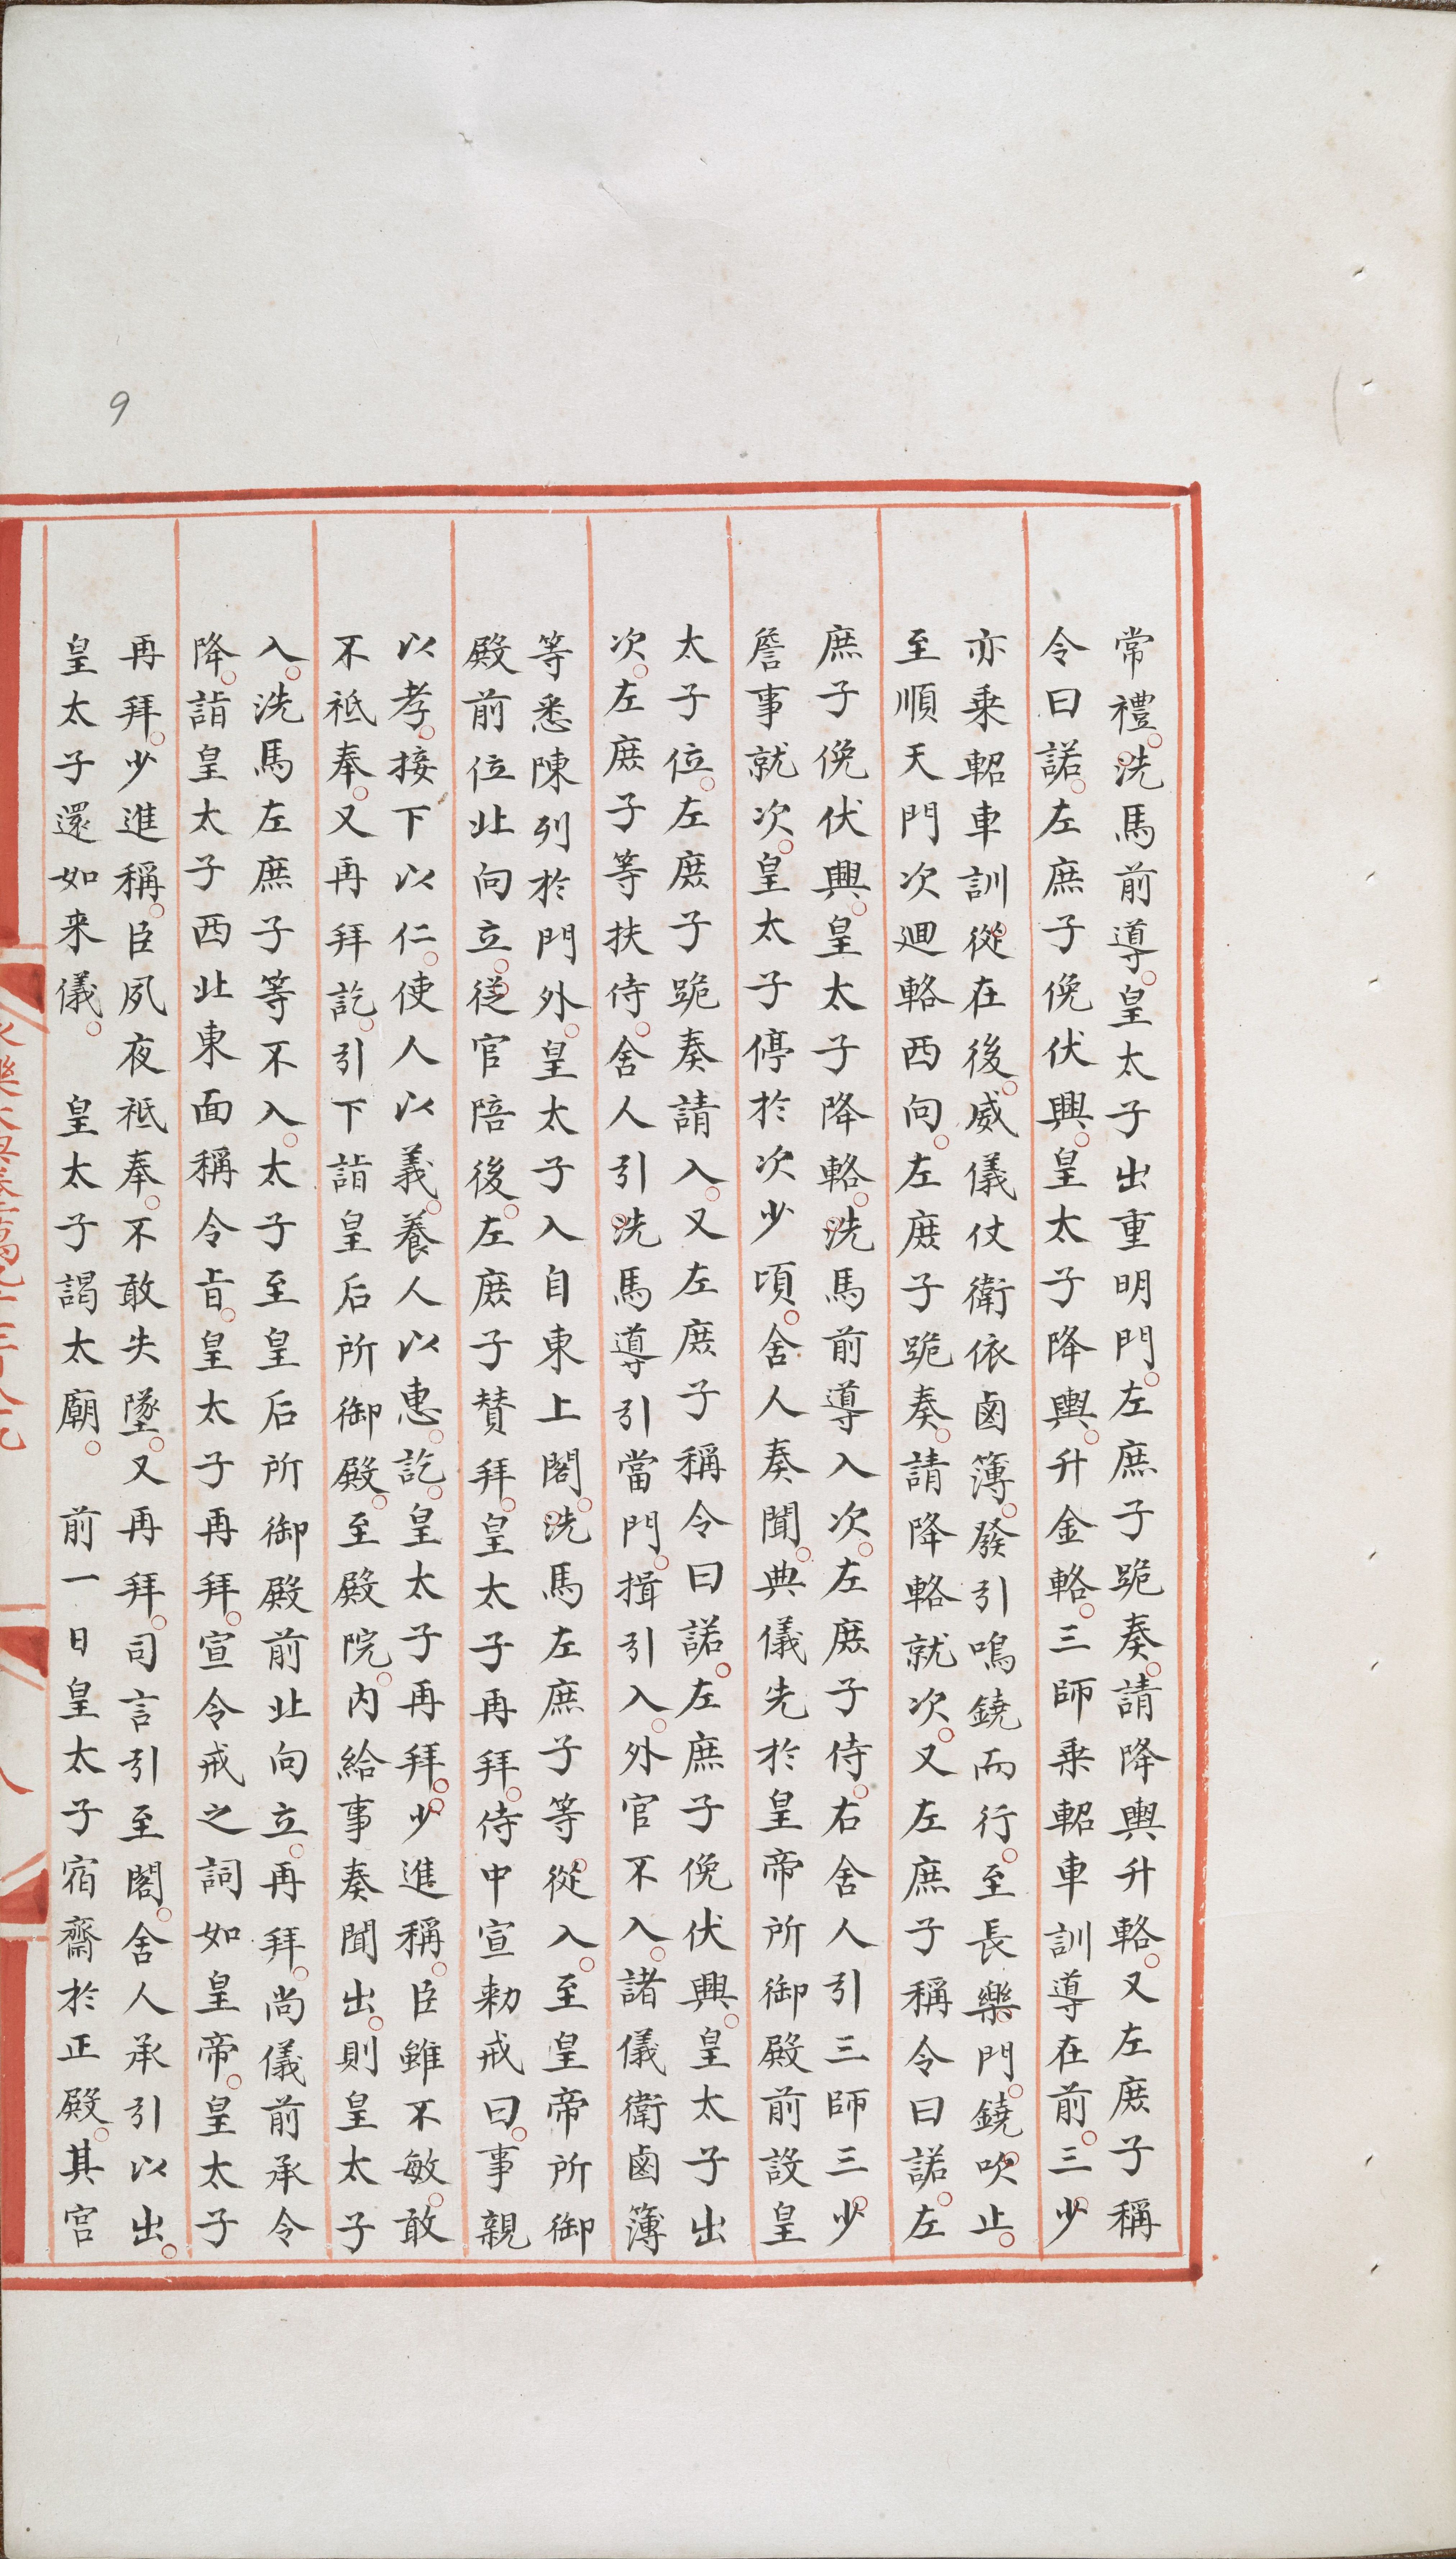 常禮。洗馬前導。皇太子出重明門。左庶子跪奏。請降輿升輅。又左庶子稱
令曰諾。左庶子俛伏興。皇太子降輿。升金輅。三師乘軺車訓導在前。三少
亦乘軺車訓從在後。威儀仗衛依鹵簿。發引鳴鐃而行。至長樂門。鐃吹止。
至順天門次迴輅西向。左庶子跪奏。請降輅就次。又左庶子稱令曰諾。左
庶子俛伏興。皇太子降輅。洗馬前導入次。左庶子侍。右舍人引三師三少
詹事就次。皇太子停於次少頃。舍人奏聞。典儀先於皇帝所御殿前設皇
太子位。左庶子跪奏請入。又左庶子稱令曰諾。左庶子俛伏興。皇太子出
次。左庶子等扶侍。舍人引洗馬導引當門。揖引入。外官不入。諸儀衛鹵簿
等悉陳列於門外。皇太子入自東上閤。洗馬左庶子等從入。至皇帝所御
殿前位北向立。從官陪後。左庶子贊拜。皇太子再拜。侍中宣勑戒曰。事親
以孝。接下以仁。使人以義。養人以惠。訖。皇太子再拜。少進稱。臣雖不敏。敢
不祗奉。又再拜訖。引下詣皇后所御殿。至殿院。内給事奏聞出。則皇太子
入。洗馬左庶子等不入。太子至皇后所御殿前北向立。再拜。尚儀前承令
降。詣皇太子西北東面稱令旨。皇太子再拜。宣令戒之詞如皇帝。皇太子
再拜。少進稱。臣夙夜祗奉。不敢失墜。又再拜。司言引至閤。舍人承引以出。
皇太子還如来儀。 皇太子謁太廟。 前一日皇太子宿齋於正殿。其宮
9